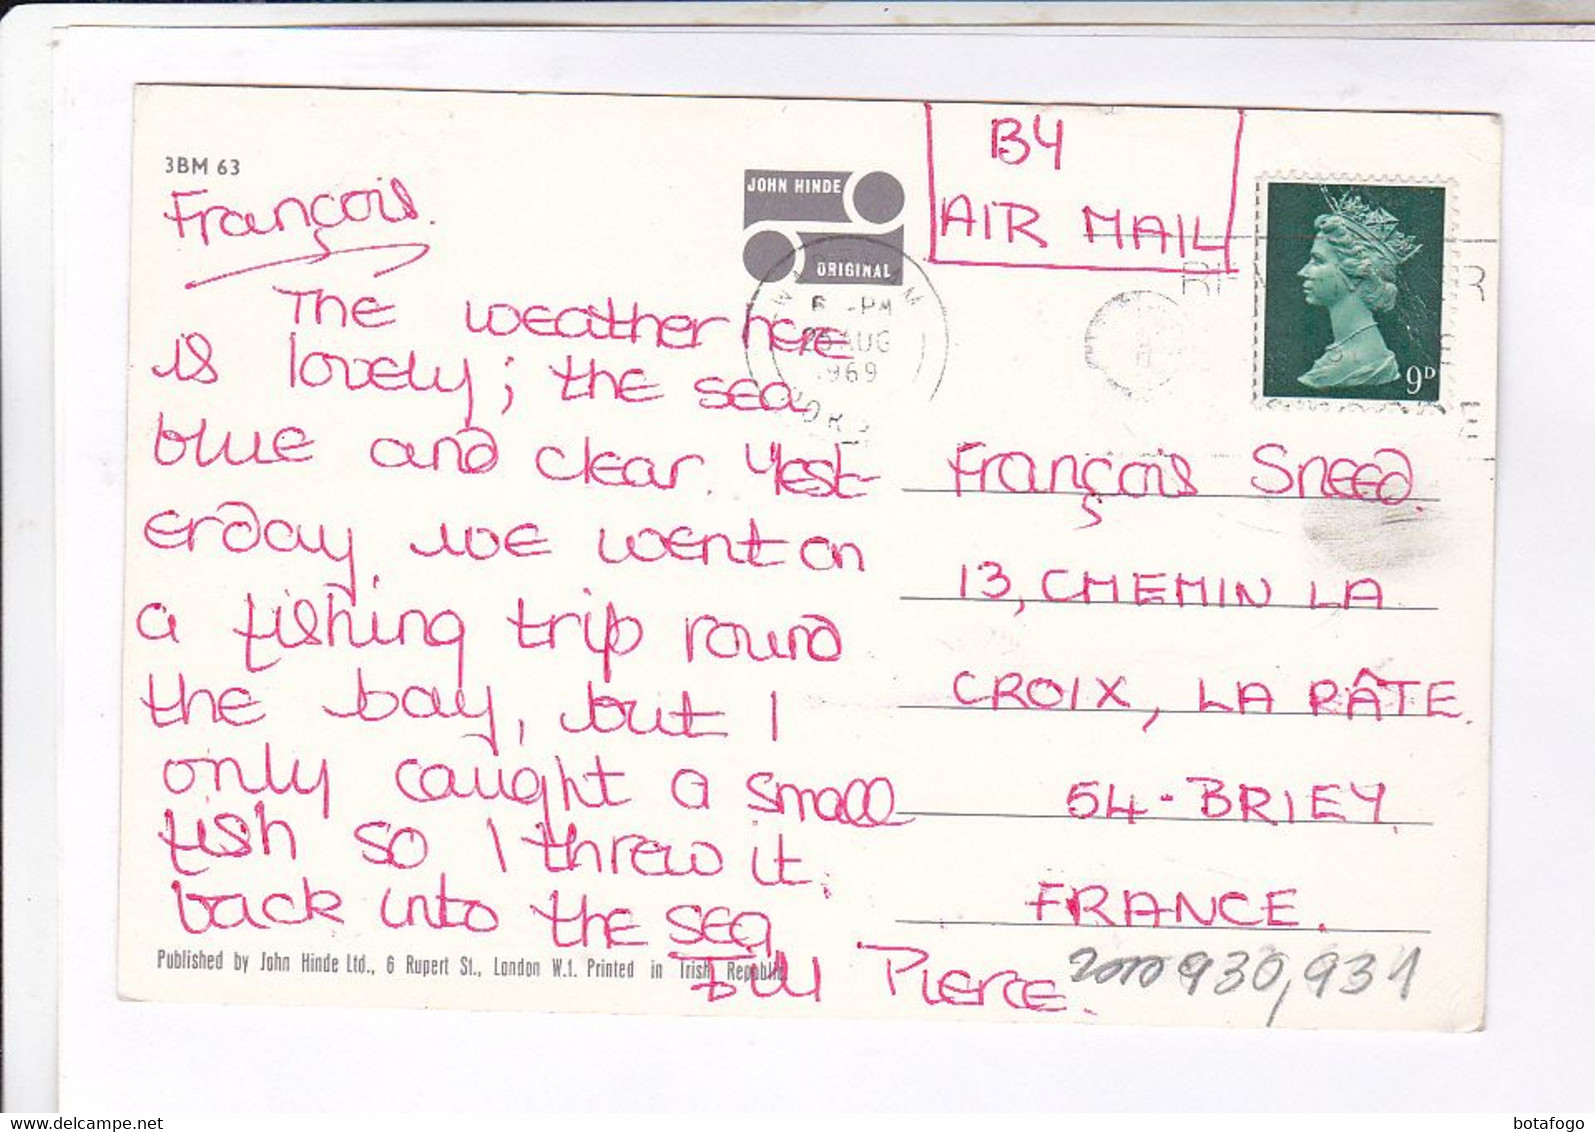 3BM 63
JOHN HINDE
ORIGINAL
BY
AIR MAIL
9D
PM
AUG
1969
François.
The weather here
is lovely; the sea
blue and clear. Yest-
erday we went on
a fishing trip round
the bay, but I
only caught a small
fish so I threw it
back into the sea
Pierce.
François Sneed.
13, CHEMIN LA
CROIX, LA PÂTE.
54-BRIEY.
FRANCE.
930,931
Published by John Hinde Ltd., 6 Rupert St., London W.1. Printed in Irish Republic
delcampe.net
botafogo